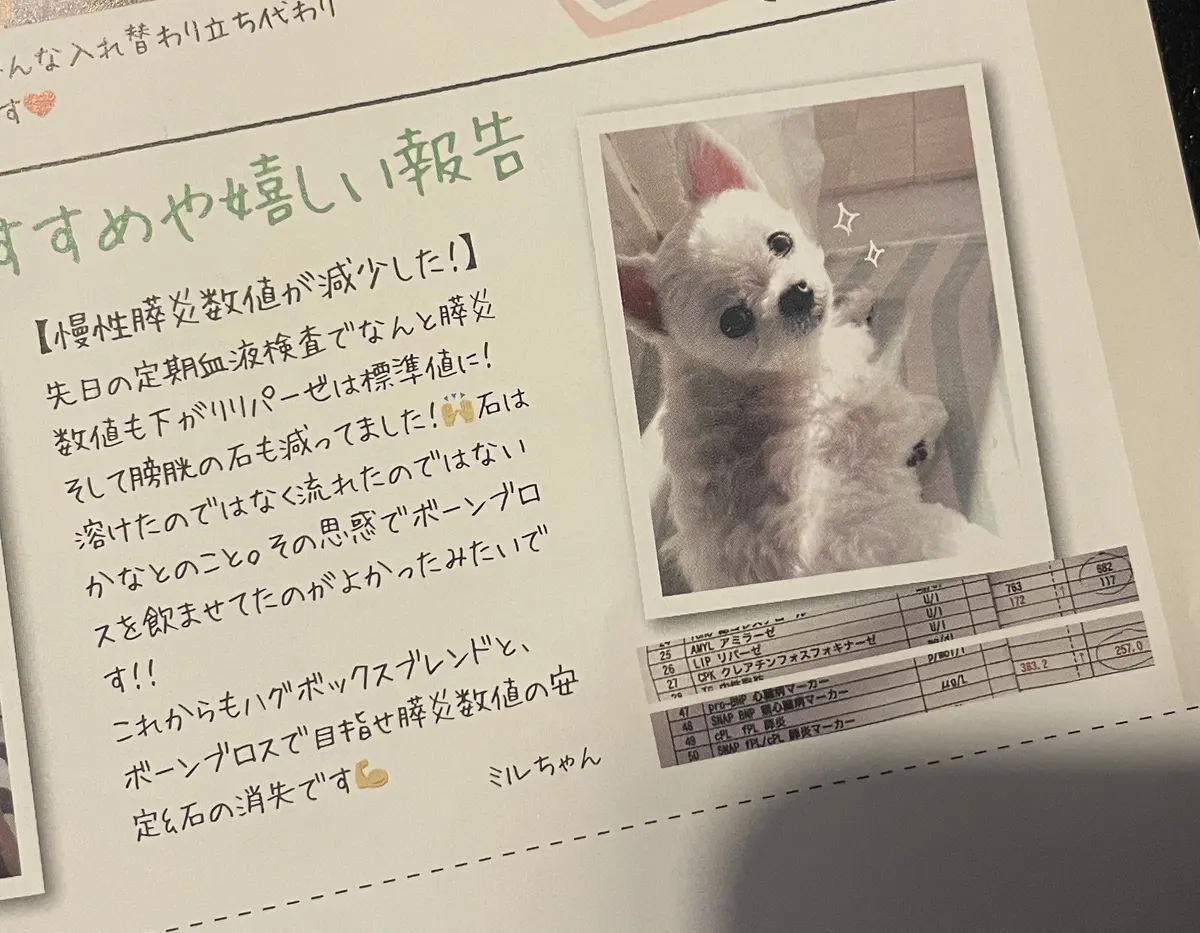 んな入れ替わり立ち代わり
す❤
すすめや嬉しい報告
【慢性膵炎数値が減少した!】
先日の定期血液検査でなんと膵炎
数値も下がりリパーゼは標準値に!
そして膀胱の石も減ってました!🙌石は
溶けたのではなく流れたのではない
かなとのこと。その思惑でボーンブロ
スを飲ませてたのがよかったみたいで
す!!
これからもハグボックスブレンドと、
ボーンブロスで目指せ膵炎数値の安
定&石の消失です💪
ミルちゃん
25 AMYL アミラーゼ U/l 763 682
26 LIP リパーゼ U/l 172 117
27 CPK クレアチンフォスフォキナーゼ U/l
47 pro-BNP 心臓病マーカー pmol/l
48 SNAP BNP 猫心臓病マーカー
49 cPL fPL 膵炎 μg/L 383.2 257.0
50 SNAP fPL/cPL 膵炎マーカー